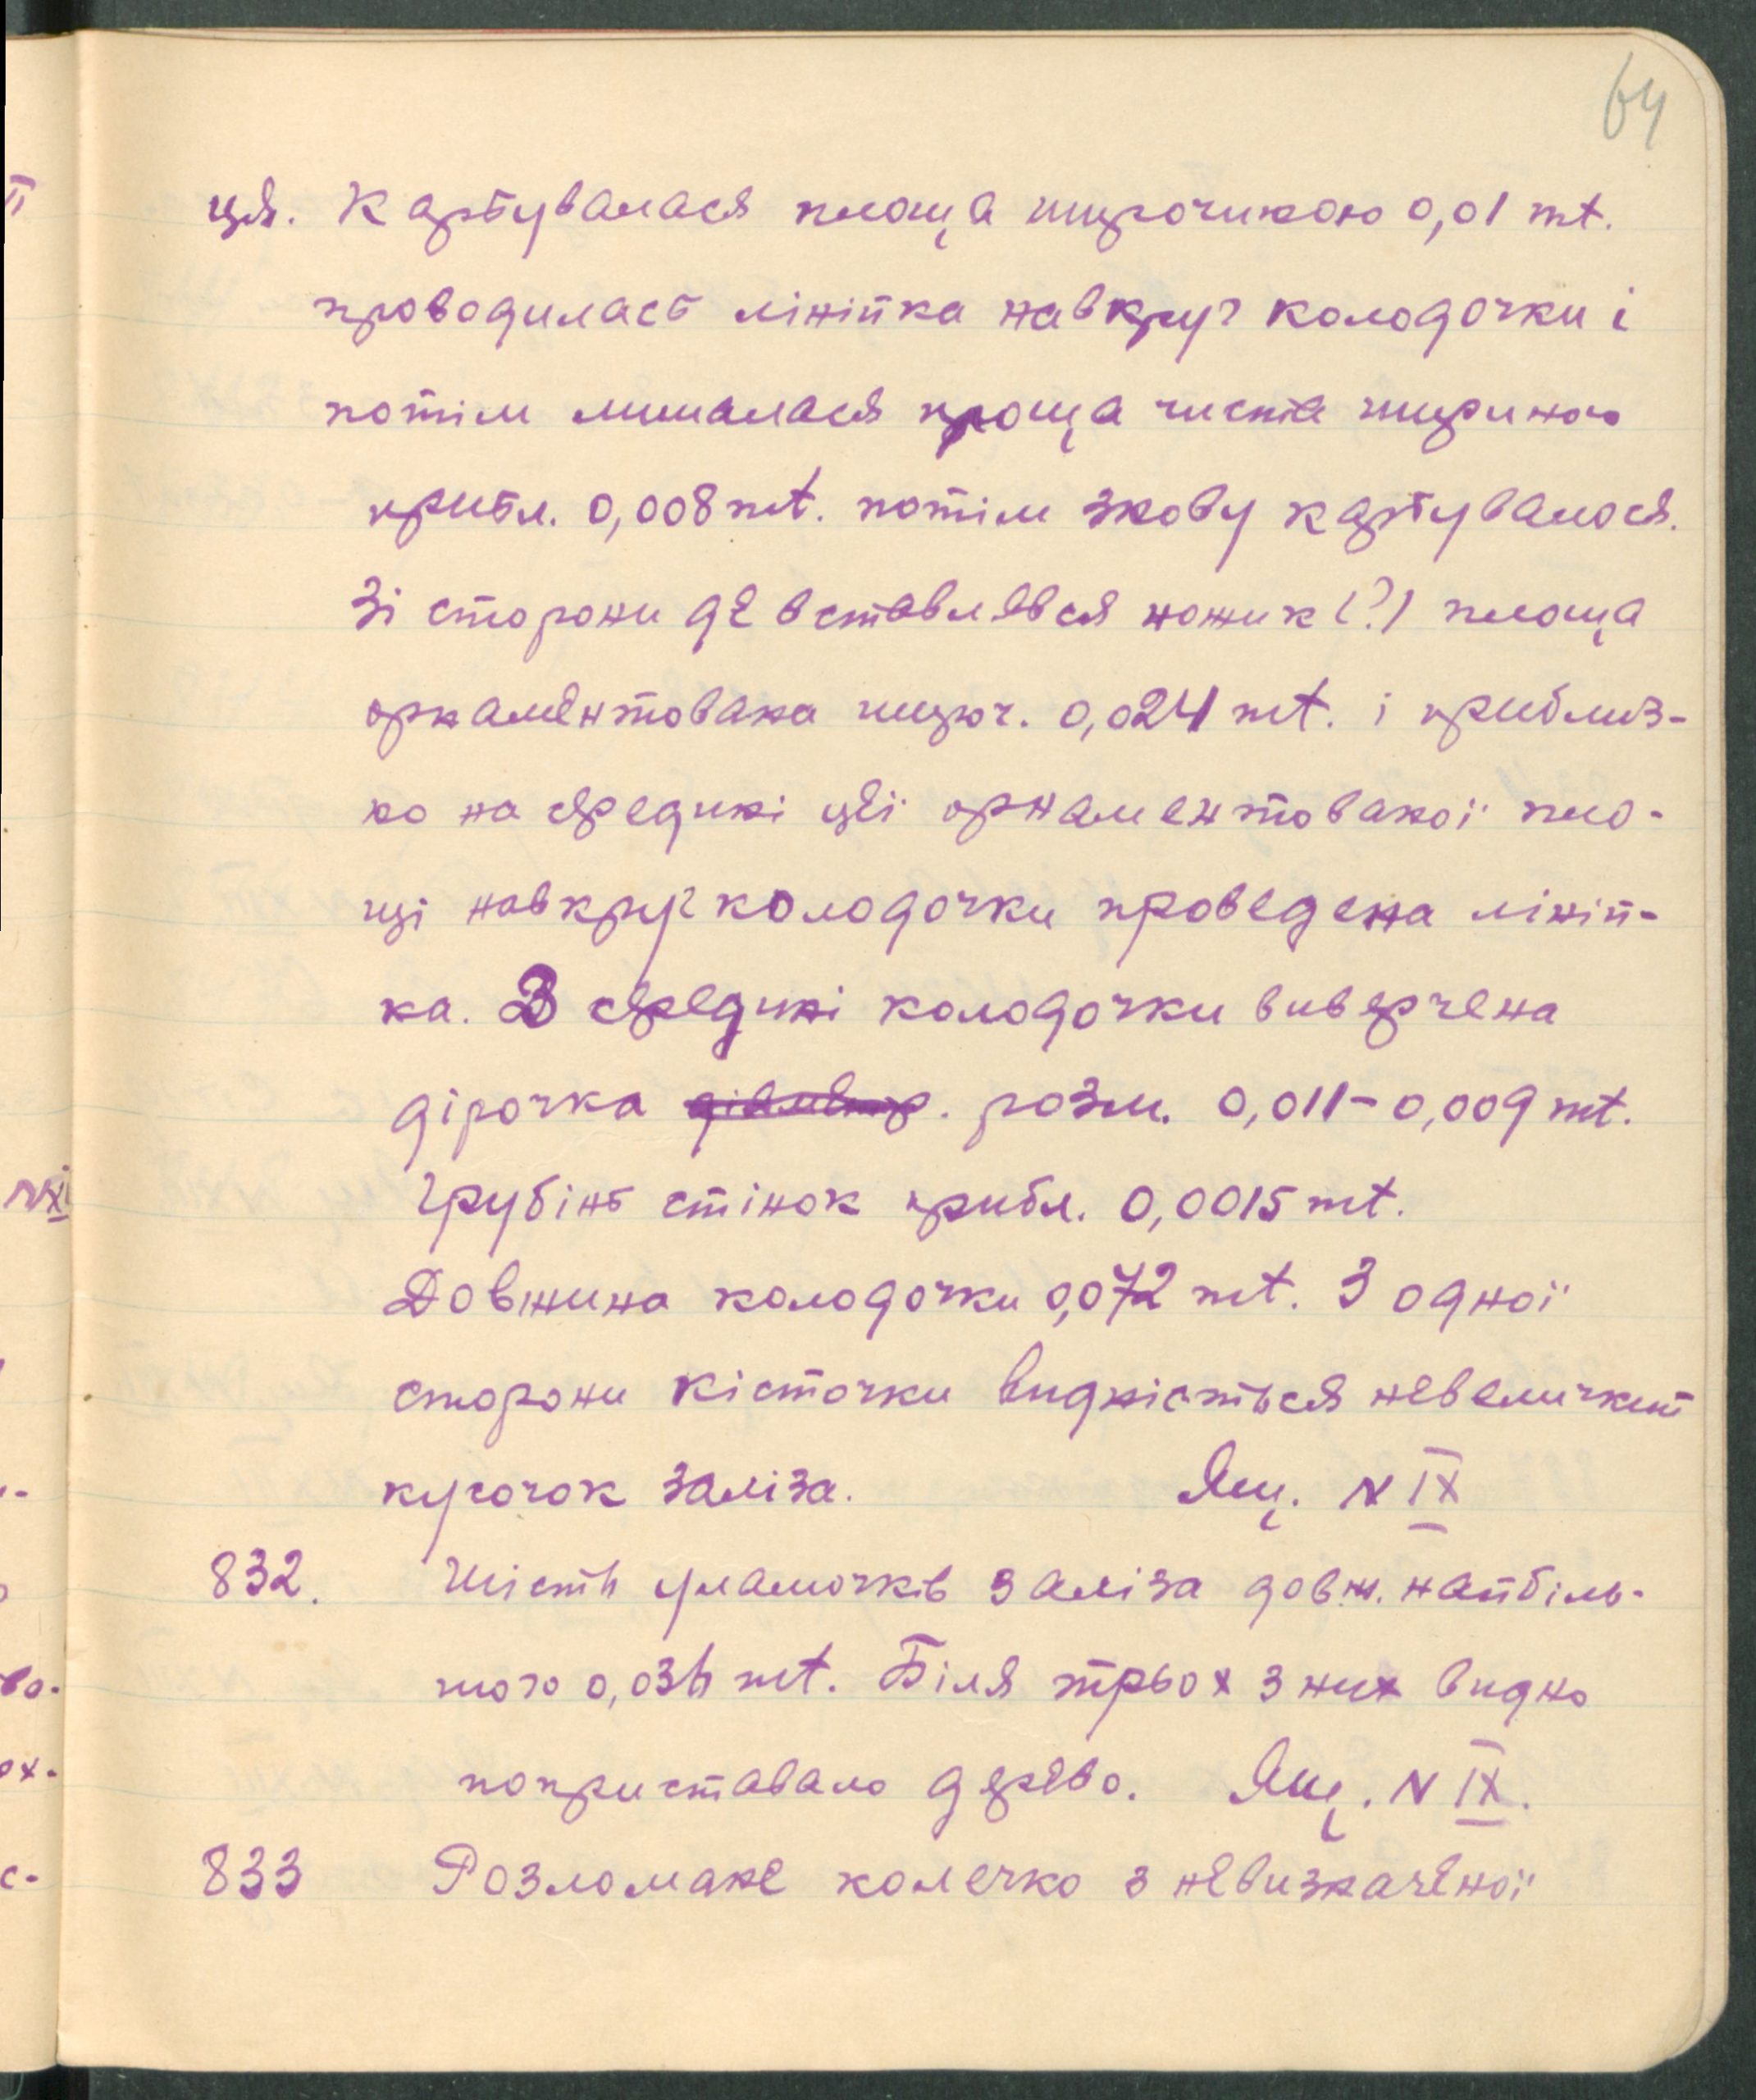 64
ця. Картувалася площа широчикою 0,01 mt.
проводилась лінійка навкруг колодочки і
потім лишалася площа чиста шириною
прибл. 0,008 mt. потім знову картувалося.
Зі сторони де вставлявся ножик (?) площа
орнаментована широч. 0,024 mt. і приблиз-
но на средині цеї орнаментованої пло-
щі навкруг колодочки проведена ліній-
ка. З средині колодочки виверчена
дірочка діаметр. розм. 0,011-0,009 mt.
Грубінь стінок прибл. 0,0015 mt.
Довжина колодочки 0,072 mt. З одної
сторони кісточки видніється невеличкий
кусочок заліза. Ящ. N IX
832. Шість уламочків заліза довж. найбіль-
шого 0,036 mt. Біля трьох з них видно
поприставало дерево. Ящ. N IX.
833 Розломане колечко з невизначеної